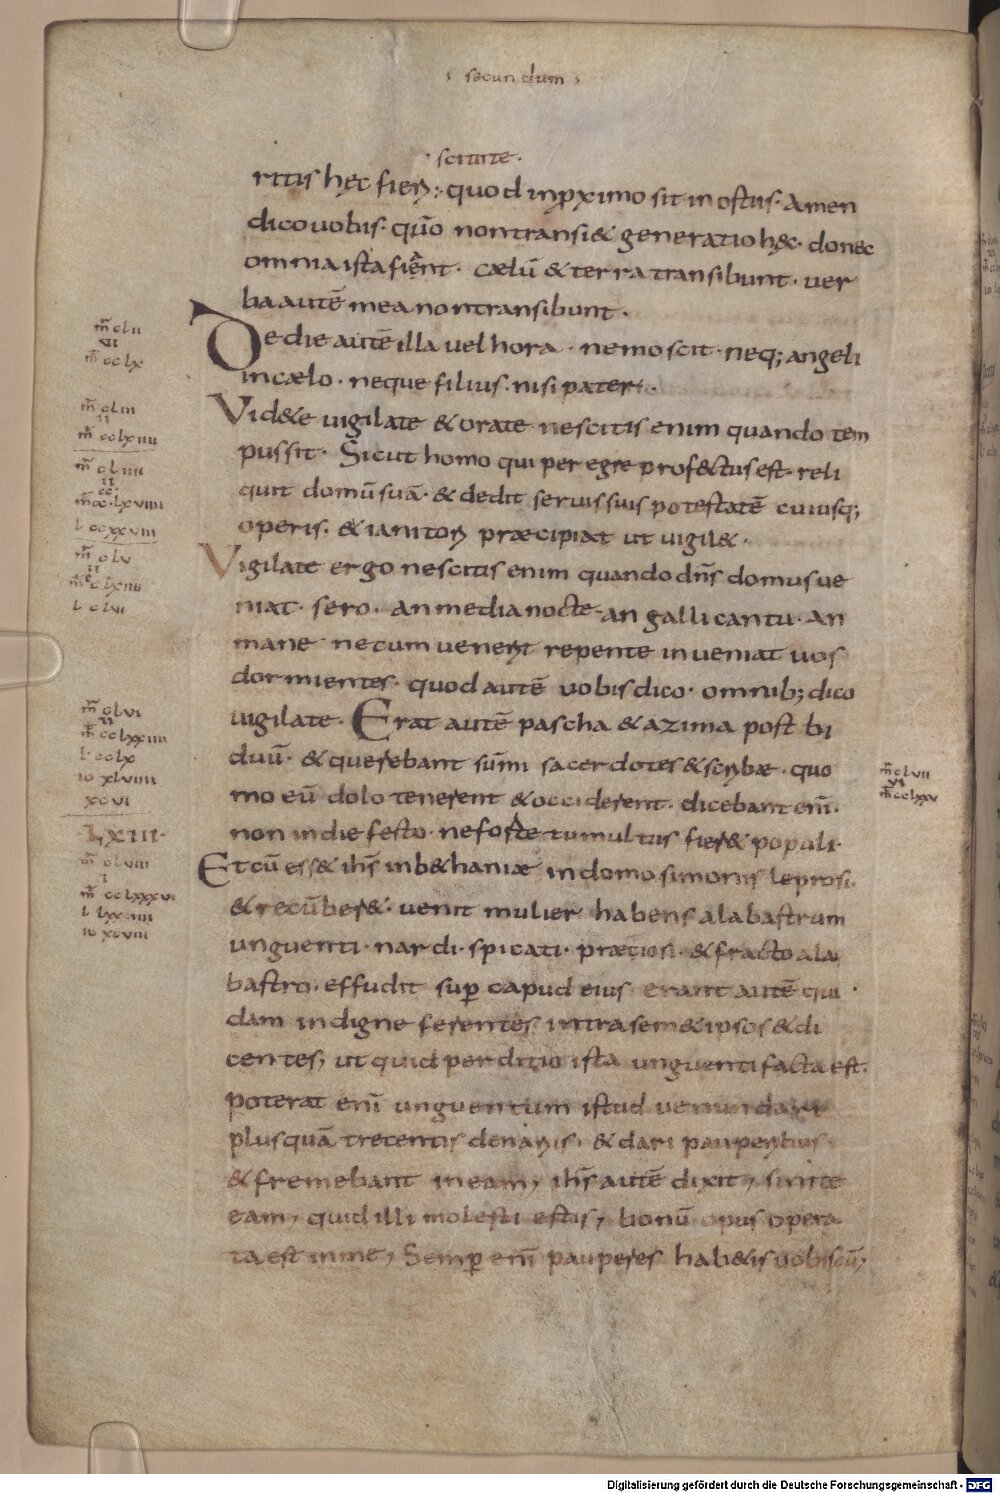 secundum
scitote.
ritis hęc fieri; quod inproximo sit in ostiis. Amen
dico uobis. qūo non transi& generatio hęc. donec
omnia ista fient. cælū & terra transibunt. ver
ba autē mea non transibunt.
De die autē illa vel hora. nemo scit. neq; angeli
in cælo. neque filius. nisi pater.
Vid&e uigilate & orate nescitis enim quando tem
pus sit. Sicut homo qui peregre profectus est. reli
quit domū suā. & dedit seruis suis potestatē cuiusq;
operis. & ianitori præcipiat ut uigil&.
Vigilate ergo nescitis enim quando dn̄s domus ue
niat. sero. an media nocte. an galli cantu. an
mane ne cum uenerit repente inueniat uos
dormientes. quod autē uobis dico. omnib; dico
uigilate. Erat autē pascha & azima post bi
duū. & querebant sum̄i sacerdotes & scribæ. quo
mo eū dolo tenerent & occiderent. dicebant eni̅.
non in die festo. ne forte tumultus fier& populi.
Et cū ess& ih̄s in b&haniæ in domo simonis leprosi.
& recūber&. uenit mulier habens alabastrum
unguenti. nardi. spicati. prætiosi. & fracto ala
bastro. effudit sup capud eius. erant autē qui
dam indigne ferentes intra sem&ipsos & di
centes, ut quid perditio ista unguenti facta est.
poterat eni̅ unguentum istud uenundari
plusquā trecentis denariis. & dari pauperibus
& fremebant in eam, ih̄s autē dixit, sinite
eam, quid illi molesti estis, bonū opus opera
ta est in me, Semp eni̅ pauperes hab&is uobiscū,
m̄ clii
vi
m̄ cclx
m̄ cliii
ii
m̄ cclxiiii
m̄ cliiii
ii
l ccxxviii
m̄ clv
ii
l clvi
m̄ clvi
ii
m̄ cclxxiiii
l cclx
io xlviiii
xcvi
LXIII
m̄ clviii
i
m̄ cclxxxvi
l lxxiiii
io xcviii
m̄ clvii
vi
m̄ cclxxv
Digitalisierung gefördert durch die Deutsche Forschungsgemeinschaft - DFG